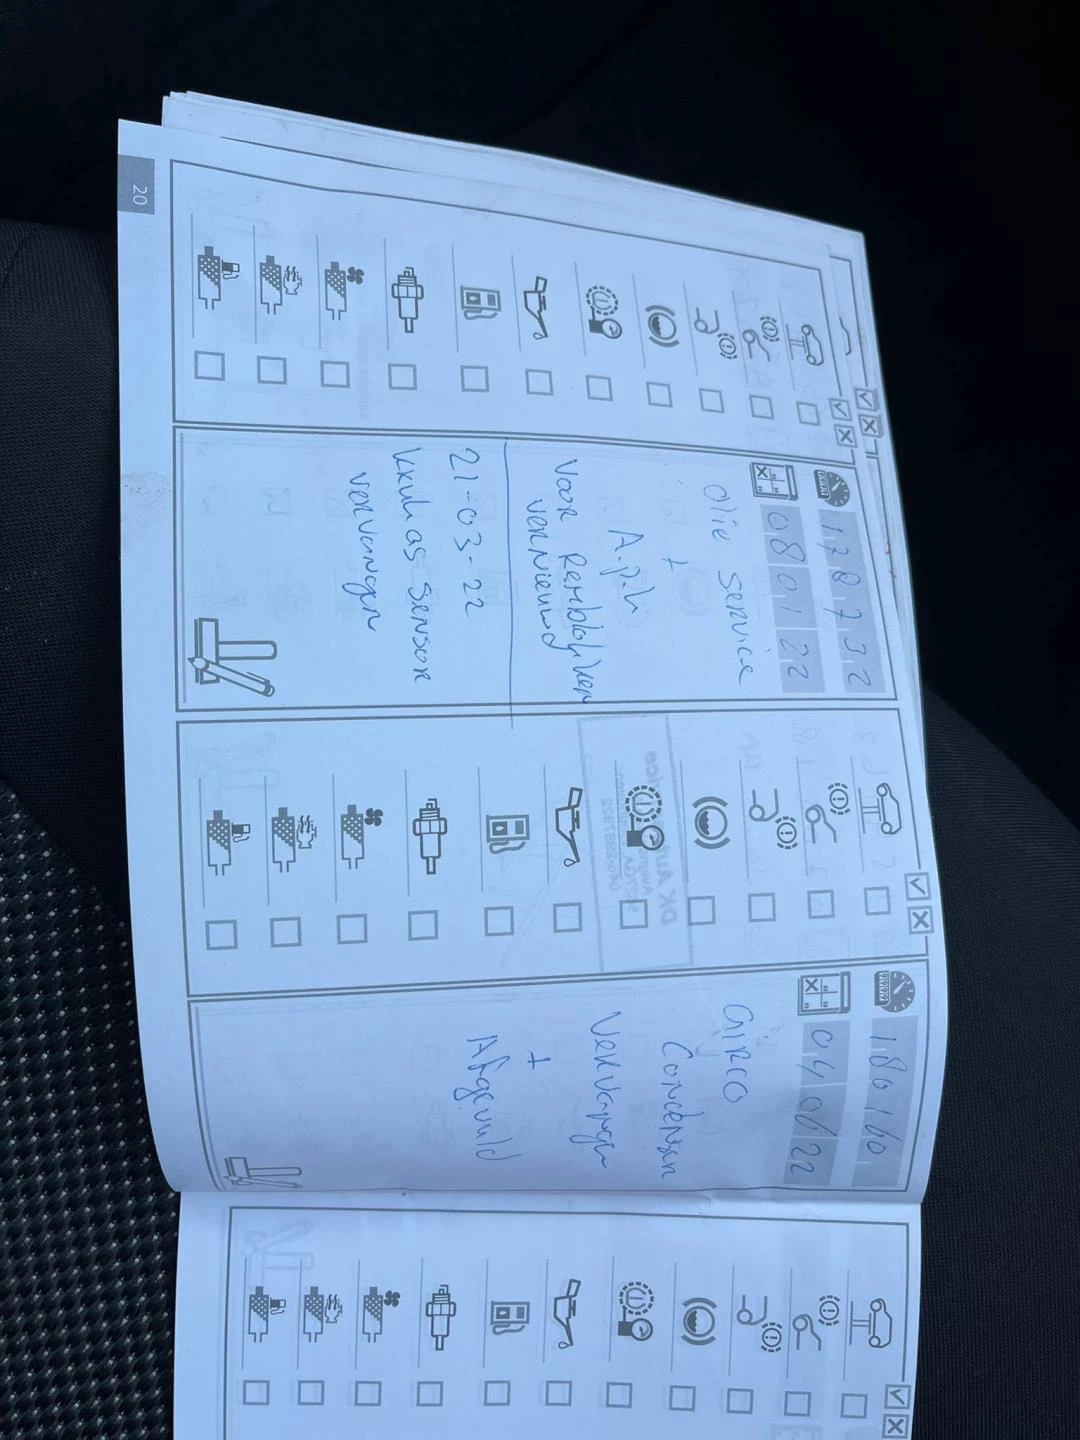 20
178732
080122
olie service
+
A.p.k
voor Remblokken
vernieuwd
21-03-22
krukas sensor
vervangen
180160
040622
airco
Condensor
vervangen
+
Afgevuld